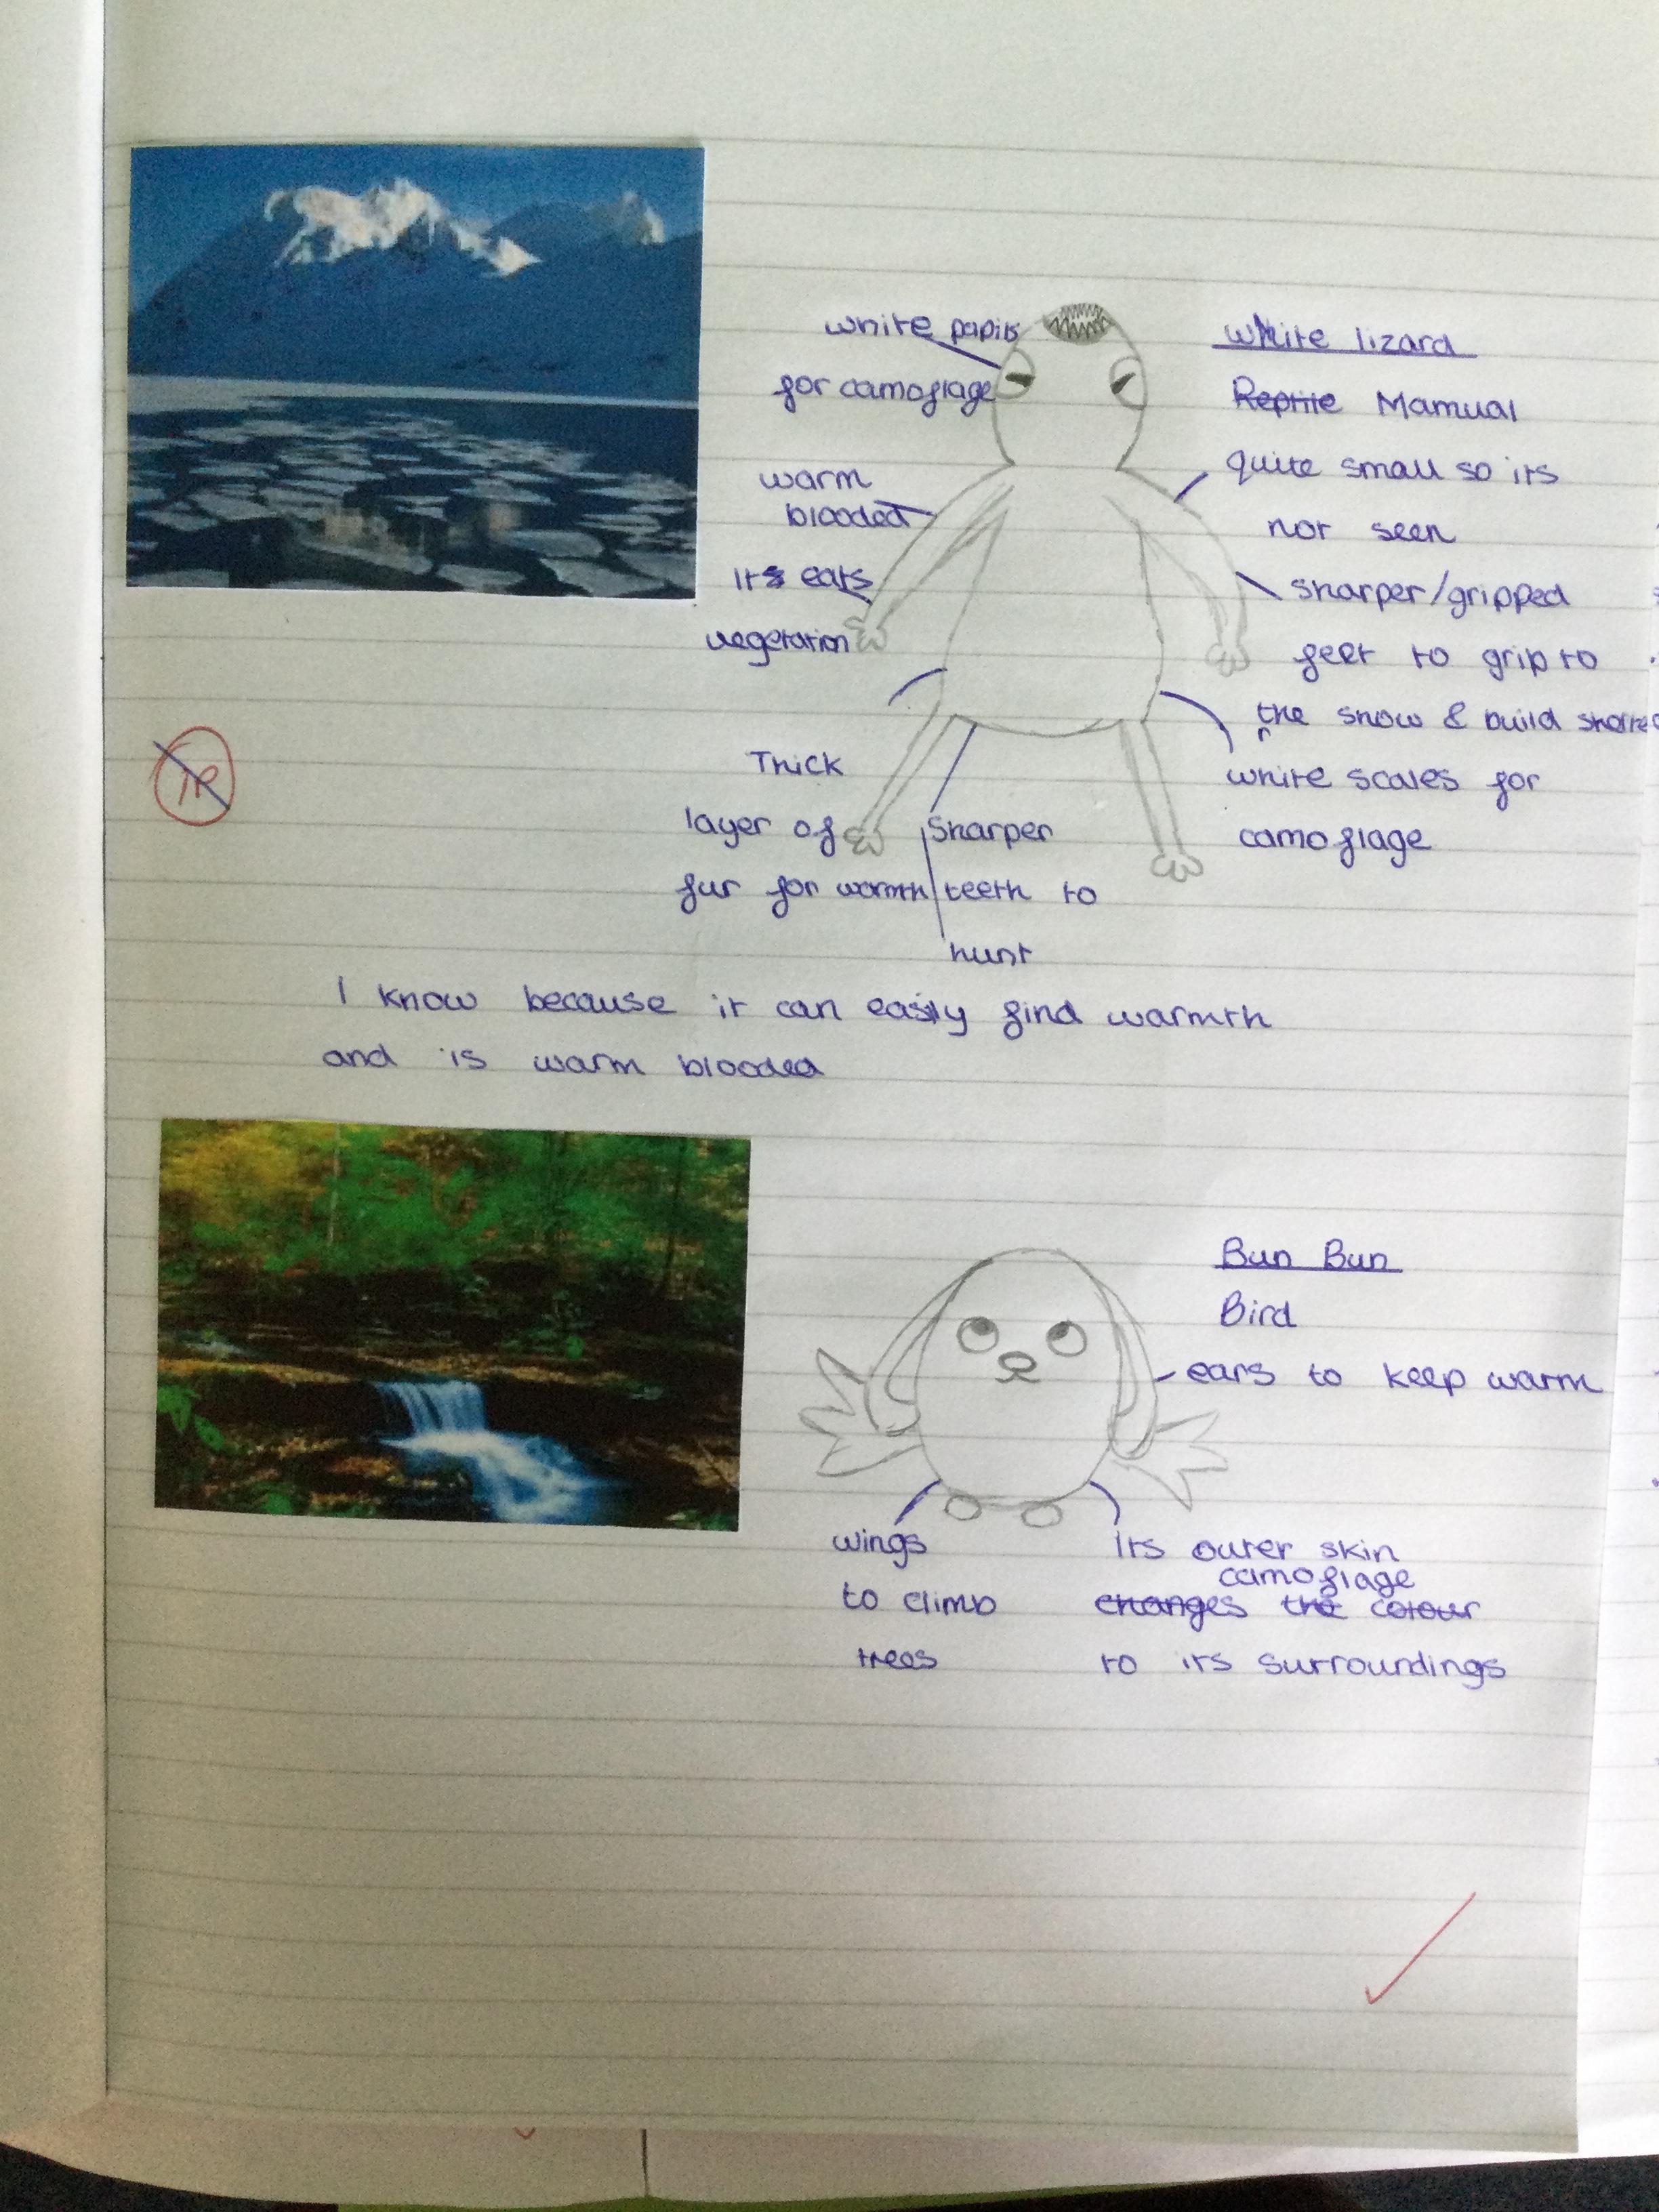 white papils
for camoflage
warm
blooded
its eats
vegetation
Thick
layer of
fur for warmth
Sharper
teeth to
hunt
White lizard
Reptile Mamual
quite small so its
not seen
sharper/gripped
feet to grip to
the snow & build
white scales for
camoflage
I know because it can easily find warmth
and is warm blooded
Bun Bun
Bird
ears to keep warm
wings
to climb
trees
its outer skin
camoflage
changes the colour
to its surroundings